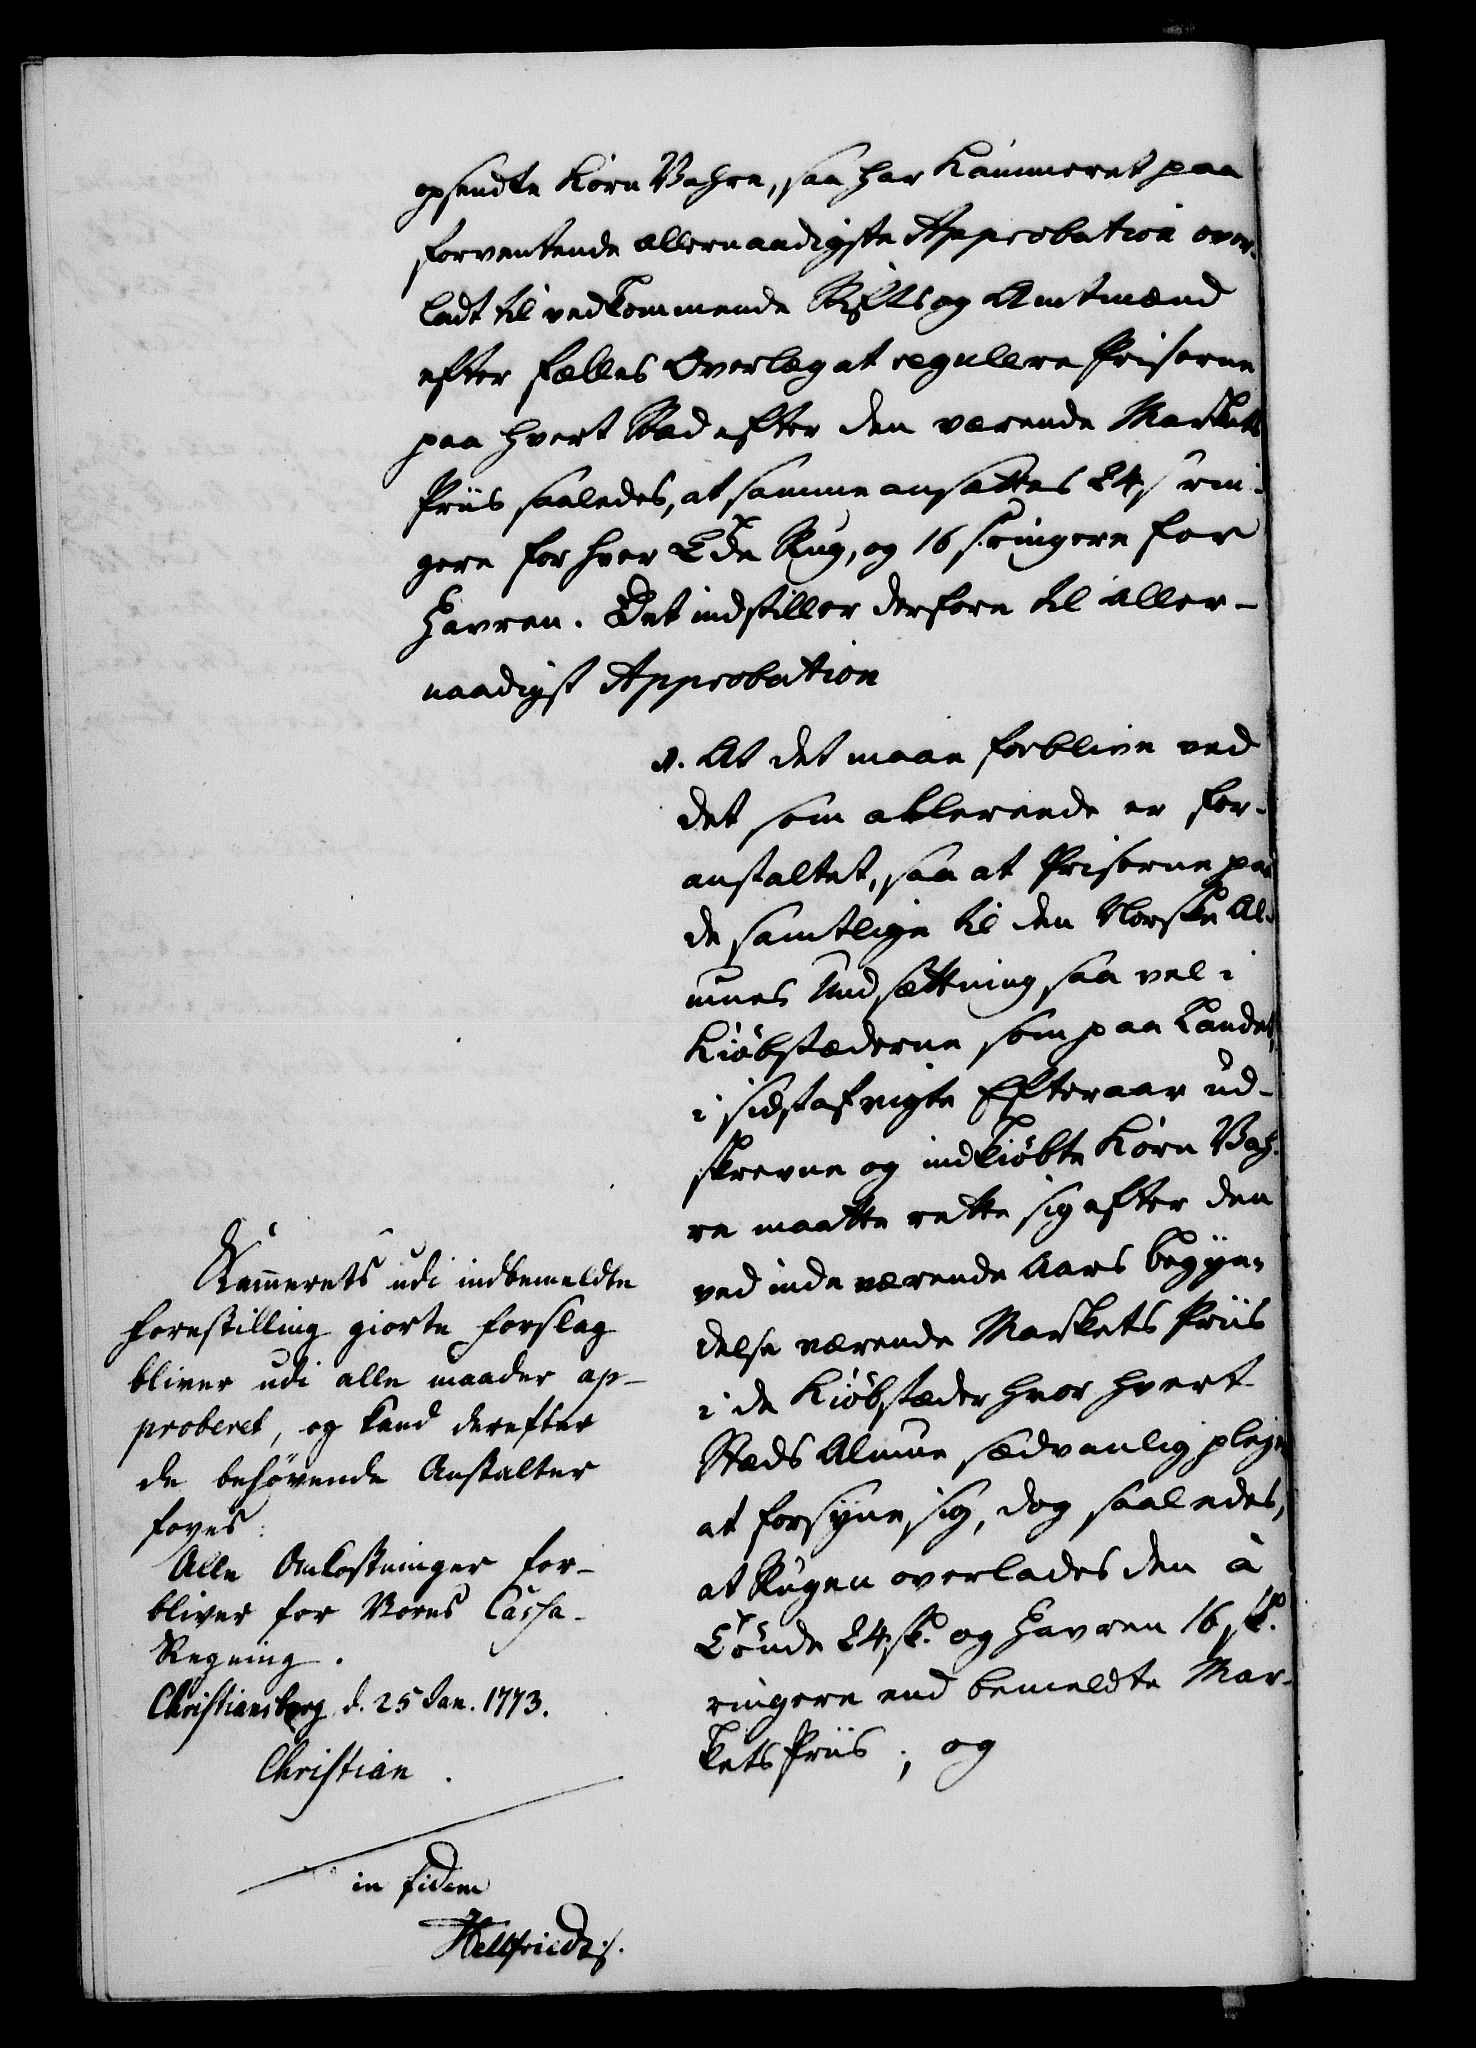 opsendte Korn Vahre, saa har Kammeret paa
forventende allernaadigste Approbation over-
ladt til vedkommende Stifts og Amtmænd
efter fælles Overlæg at regulere Priserne
paa hvert Stæd efter den værende Markets
Priis saaledes, at samme ansættes 24 s rin-
gere for hver Tde Rug, og 16 s. ringere for
Havren. Det indstiller derfore til aller-
naadigst Approbation
1. At det maae forblive ved
det som allereede er for-
anstaltet, saa at Priserne paa
de samtlige til den Norske Al-
mues Undsættning saa vel i
Kiöbstæderne som paa Landet,
i sidstafvigte Efteraar ud-
skrevne og indkiöbte Korn Vah-
re maatte rette sig efter den
ved indeværende Aars Begyn-
delse værende Markets Priis
i de Kiöbstæder hvor hvert
Stæds Almue sædvanlig pleje
at forsyne sig, dog saaledes,
at Rugen overlades den à
Tönde 24 sk. og Havren 16 sk.
ringere end bemeldte Mar-
kets Priis; og
Kammerets udi indbemeldte
forestilling giorte forslag
bliver udi alle maader ap-
proberet, og kand derefter
de behøvende Anstalter
foyes:
Alle Omkostninger for-
bliver for Vores Cassa-
Regning.
Christiansborg d. 25 Jan. 1773.
Christian.
in fidem
Hellfriedt